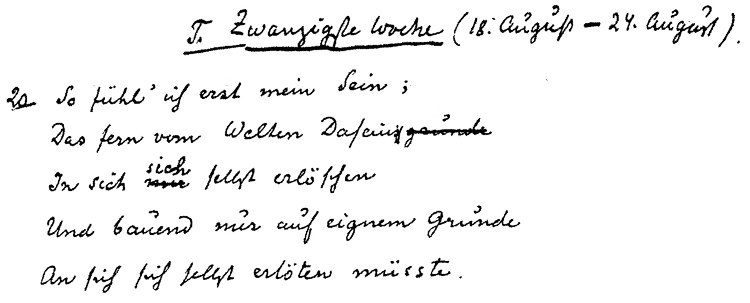 T. Zwanzigste Woche (18. August – 24. August).
20 So fühl' ich erst mein Sein ;
Das fern vom Welten Dasein
In sich sich selbst erlöschen
Und bauend nur auf eignem Grunde
An sich sich selbst ertöten müsste.